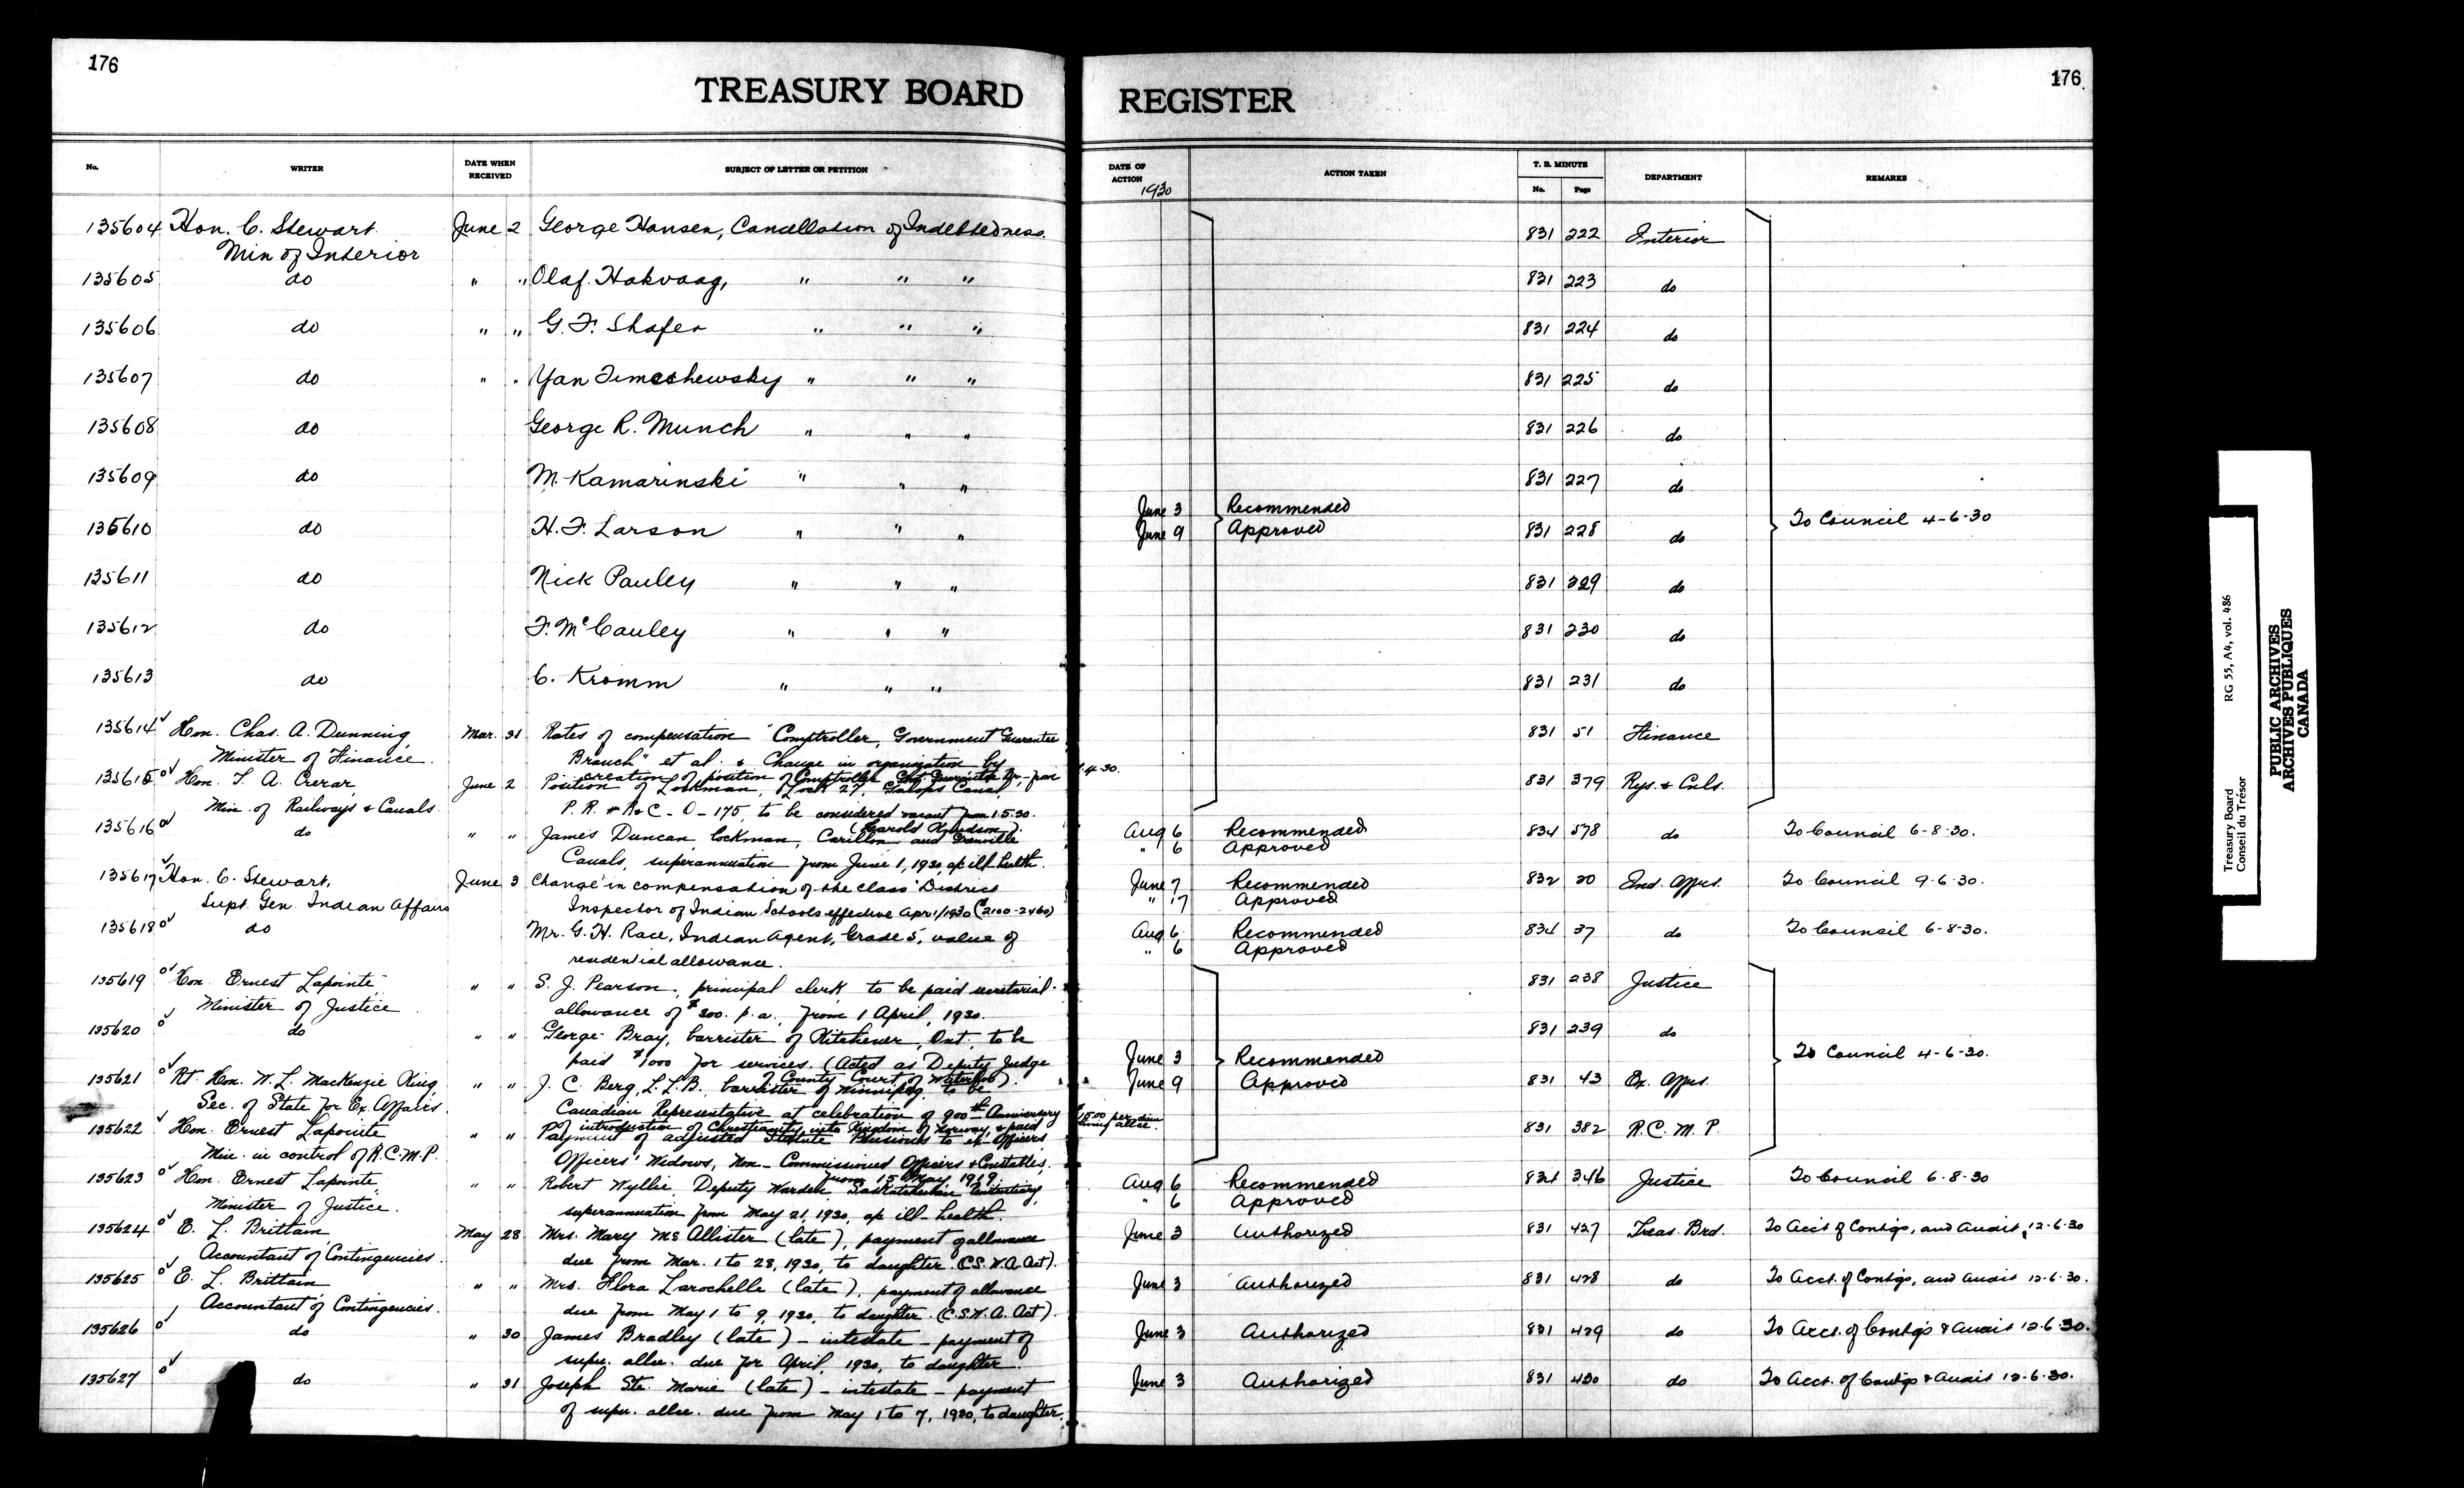 176
TREASURY BOARD REGISTER
176
No. WRITER DATE WHEN RECEIVED SUBJECT OF LETTER OR PETITION DATE OF ACTION ACTION TAKEN T. B. MINUTE No. Page DEPARTMENT REMARKS
1930
135604 Hon. C. Stewart June 2 George Hansen, Cancellation of Indebtedness. 831 222 Interior
Min of Interior
135605 do " " Olaf Hakvaag, " " " 831 223 do
135606 do " " G. F. Shafer " " " 831 224 do
135607 do " " Yan " " " 831 225 do
135608 do George R. Munch " " " 831 226 do
135609 do M. Kamarinski " " " 831 227 do
June 3 Recommended
135610 do H. F. Larson " " " June 9 Approved 831 228 do To Council 4-6-30
135611 do Nick Pauley " " " 831 229 do
135612 do F. McCauley " " " 831 230 do
135613 do C. Kromm " " " 831 231 do
135614 Hon. Chas. A. Dunning, Mar. 31 Rates of compensation "Comptroller, Government Guarantee 831 51 Finance
Minister of Finance. Branch" et al. & Change in organization by
creation of position of Comptroller Govt. Guarantee Br. - from 1.4.30.
135615 Hon. T. A. Crerar, June 2 Position of Lockman, Lock 27, Galops Canal, 831 379 Rys. & Cnls.
Min. of Railways & Canals P. R. & R & C - O - 175, to be considered vacant from 1.5.30.
(Harold).
135616 do " " James Duncan, lockman, Carillon and Grenville Aug 6 Recommended 834 578 do To Council 6-8-30.
Canals, superannuation from June 1, 1930, a/c ill health. " 6 Approved
135617 Hon. C. Stewart, June 3 Change in compensation of the class District June 7 Recommended 832 20 Ind. Affrs. To Council 9-6-30.
Supt. Gen. Indian Affairs Inspector of Indian Schools effective Apr 1/1930 ($2100-2460) " 17 Approved
135618 do Mr. G. H. Race, Indian Agent, Grade 5, value of Aug 6 Recommended 834 37 do To Council 6-8-30.
residential allowance. " 6 Approved
135619 Hon. Ernest Lapointe " " S. J. Pearson, principal clerk, to be paid secretarial 831 238 Justice
Minister of Justice allowance of $300. p.a. from 1 April, 1930.
135620 do " " George Bray, barrister of Kitchener, Ont., to be 831 239 do
paid $1000 for services. (Acted as Deputy Judge June 3 Recommended To Council 4-6-30.
of County Court of Waterloo).
135621 Rt. Hon. W. L. MacKenzie King " " J. C. Berg, L.L.B. barrister of Winnipeg to be June 9 Approved 831 43 Ex. Affrs.
Sec. of State for Ex. Affairs. Canadian Representative at celebration of 900th Anniversary
of introduction of Christianity into Kingdom of Norway, & paid $15.00 per diem living allce.
135622 Hon. Ernest Lapointe " " Payment of adjusted Statute Pensions to ex-Officers 831 382 R. C. M. P.
Min. in control of R.C.M.P. Officers' Widows, Non-Commissioned Officers & Constables,
from 15 May, 1919.
135623 Hon. Ernest Lapointe, " " Robert Wyllie, Deputy Warden, Saskatchewan Penitentiary, Aug 6 Recommended 834 346 Justice To Council 6-8-30
Minister of Justice. superannuation from May 21, 1930, a/c ill-health. " 6 Approved
135624 E. L. Brittain, May 28 Mrs. Mary McAllister (late), payment of allowance June 3 Authorized 831 427 Treas. Brd. To Acct of Contigs, and Audit, 12-6-30
Accountant of Contingencies. due from Mar. 1 to 28, 1930, to daughter. (C.S.R.A. Act).
135625 E. L. Brittain " " Mrs. Flora Larochelle (late), payment of allowance June 3 Authorized 831 428 do To Acct. of Contigs, and Audit 12-6-30.
Accountant of Contingencies. due from May 1 to 9, 1930, to daughter. (C.S.R.A. Act).
135626 do " 30 James Bradley (late) - intestate - payment of June 3 Authorized 831 429 do To Acct. of Contigs & Audit 12-6-30.
supn. allce. due for April, 1930, to daughter.
135627 do " 31 Joseph Ste. Marie (late) - intestate - payment June 3 Authorized 831 430 do To Acct. of Contigs & Audit 12-6-30.
of supn. allce. due from May 1 to 7, 1930, to daughter.
Treasury Board RG 55, A4, vol. 486
Conseil du Trésor
PUBLIC ARCHIVES
ARCHIVES PUBLIQUES
CANADA